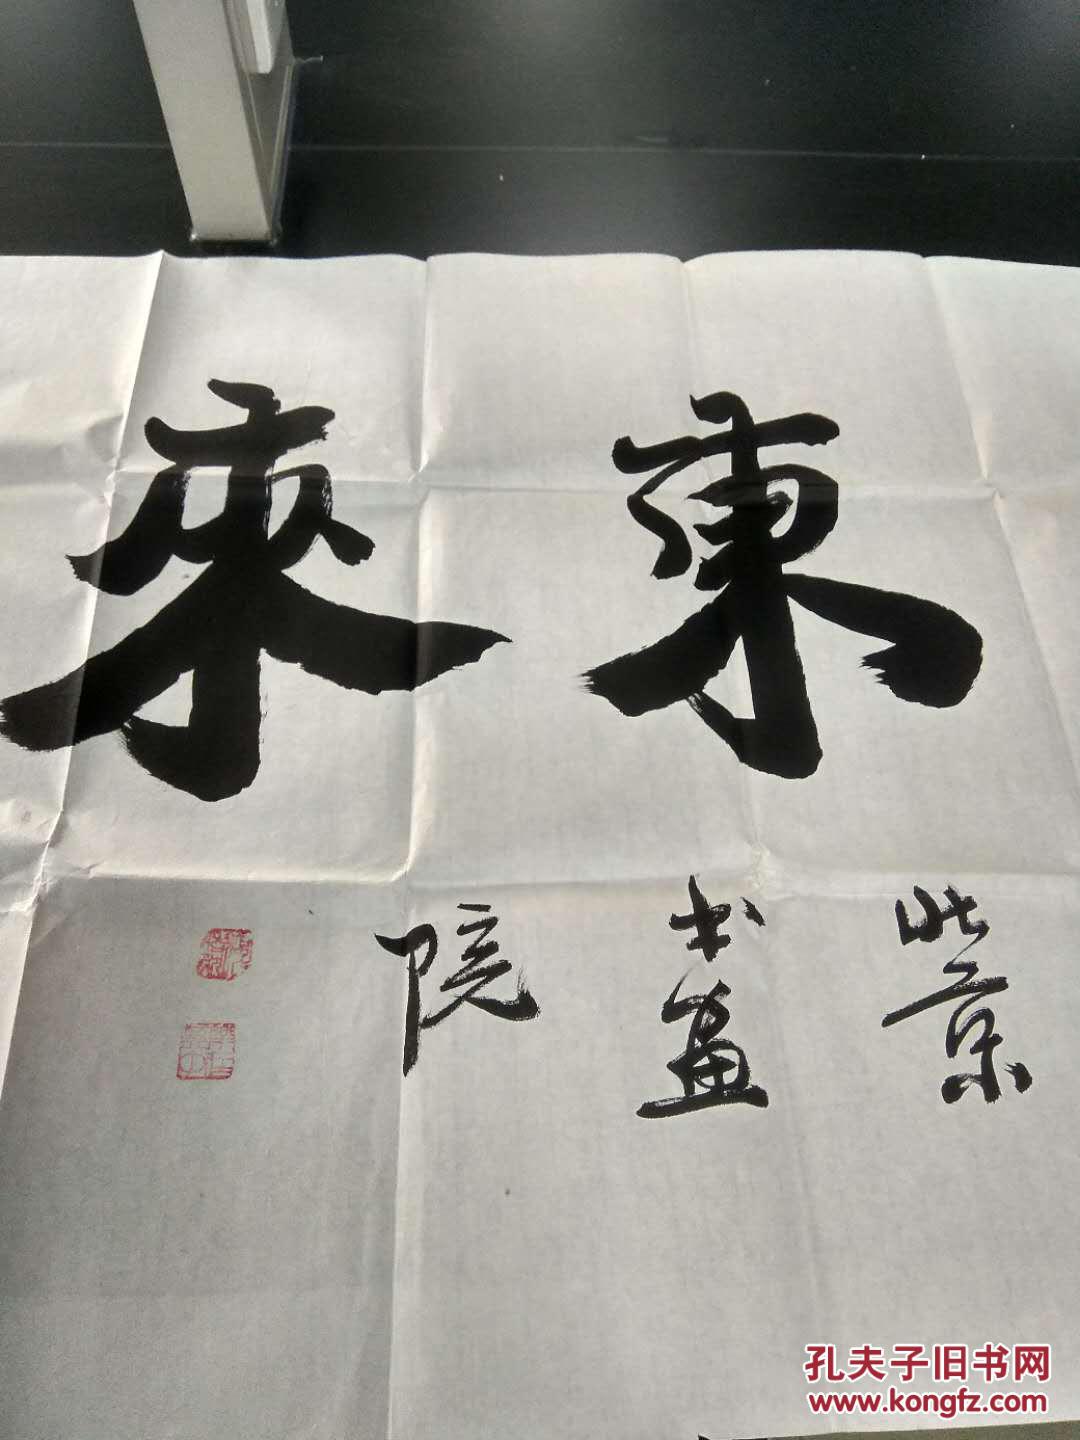 東來
北京
书畫
院
孔夫子旧书网
www.kongfz.com